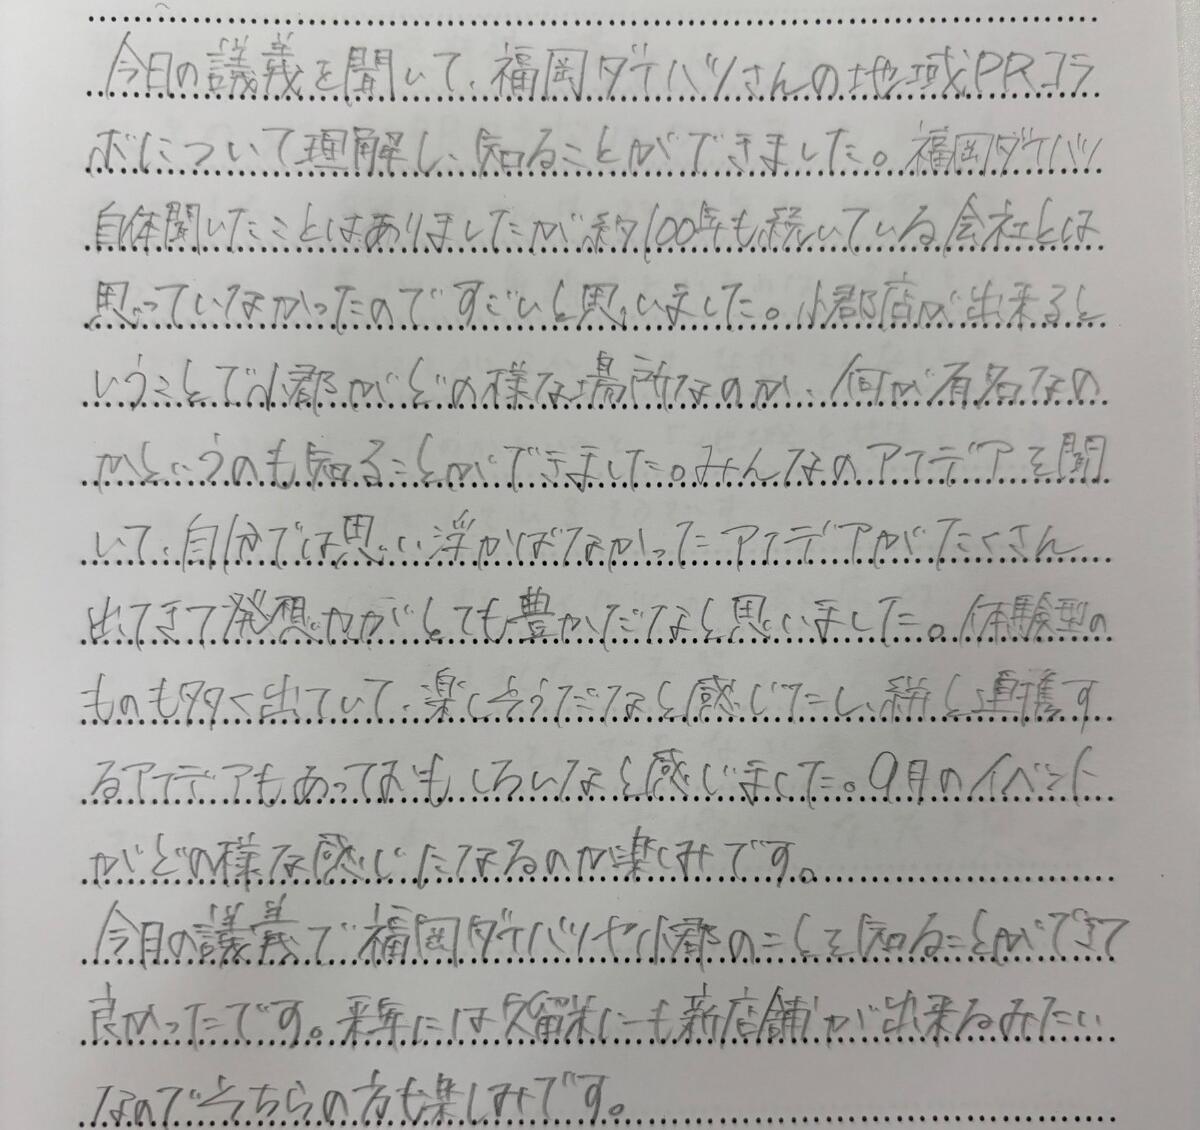 今日の議義を聞いて、福岡ダイハツさんの地域PRコラ
ボについて理解し、知ることができました。福岡ダイハツ
自体聞いたことはありましたが約100年も続いている会社とは
思っていなかったのですごいと思いました。小郡店が出来ると
いうことで小郡がどの様な場所なのか、何が有名なの
かというのも知ることができました。みんなのアイデアを聞
いて、自分では思い浮かばなかったアイデアがたくさん
出てきて発想力がとても豊かだなと思いました。体験型の
ものも多く出ていて、楽しそうだなと感じたし、絣と連携す
るアイデアもあっておもしろいなと感じました。9月のイベント
がどの様な感じになるのか楽しみです。
今日の議義で福岡ダイハツや小郡のことを知ることができて
良かったです。来年には久留米にも新店舗が出来るみたい
なのでそちらの方も楽しみです。